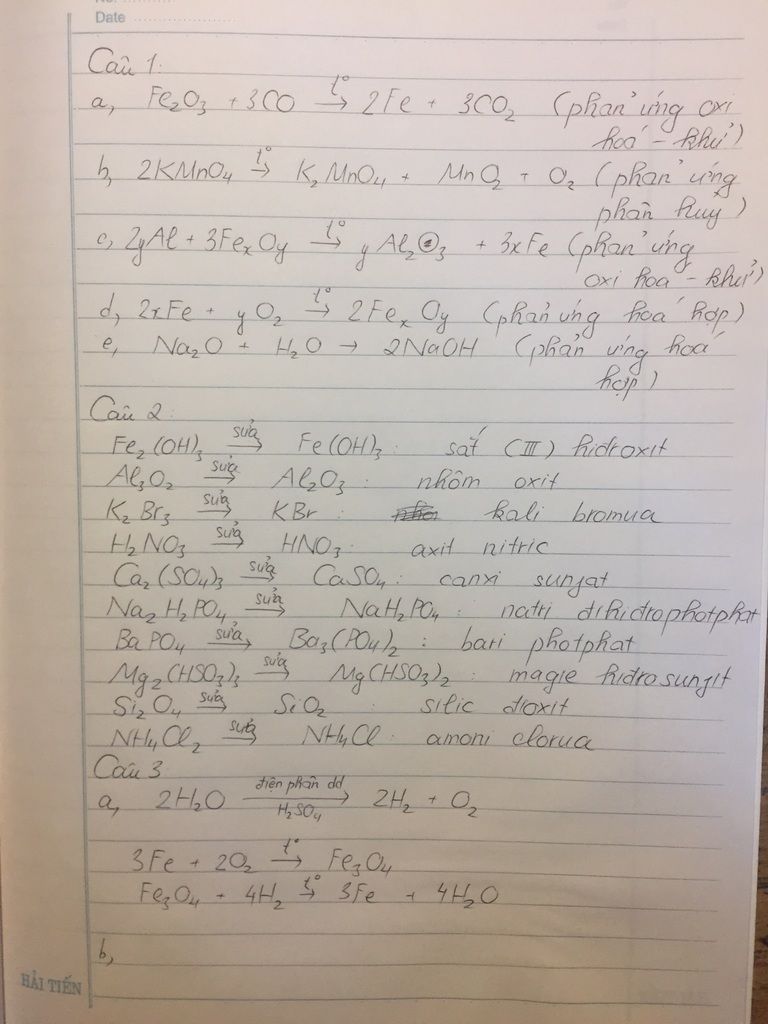 No: ............
Date ......................
Câu 1:
a, Fe₂O₃ + 3CO →t° 2Fe + 3CO₂ (phản ứng oxi
hoá - khử)
b, 2KMnO₄ →t° K₂MnO₄ + MnO₂ + O₂ (phản ứng
phân huỷ)
c, 2yAl + 3FexOy →t° yAl₂O₃ + 3xFe (phản ứng
oxi hoá - khử)
d, 2xFe + yO₂ →t° 2FexOy (phản ứng hoá hợp)
e, Na₂O + H₂O → 2NaOH (phản ứng hoá
hợp)
Câu 2:
Fe₂(OH)₃ →sửa Fe(OH)₃: sắt (III) hidroxit
Al₃O₂ →sửa Al₂O₃: nhôm oxit
K₂Br₃ →sửa KBr: kali bromua
H₂NO₃ →sửa HNO₃: axit nitric
Ca₂(SO₄)₃ →sửa CaSO₄: canxi sunfat
Na₂H₂PO₄ →sửa NaH₂PO₄: natri đihiđrophotphat
BaPO₄ →sửa Ba₃(PO₄)₂: bari photphat
Mg₂(HSO₃)₃ →sửa Mg(HSO₃)₂: magie hidrosunfit
Si₂O₄ →sửa SiO₂: silic đioxit
NH₄Cl₂ →sửa NH₄Cl: amoni clorua
Câu 3
a, 2H₂O →điện phân dd H₂SO₄ 2H₂ + O₂
3Fe + 2O₂ →t° Fe₃O₄
Fe₃O₄ + 4H₂ →t° 3Fe + 4H₂O
b,
HẢI TIẾN